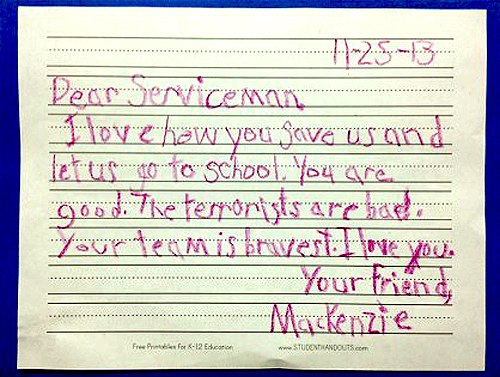 11-25-13
Dear Serviceman,
I love how you save us and
let us go to school. You are
good. The terrorists are bad.
Your team is bravest. I love you.
Your friend,
Mackenzie
Free Printables for K-12 Education www.STUDENTHANDOUTS.com